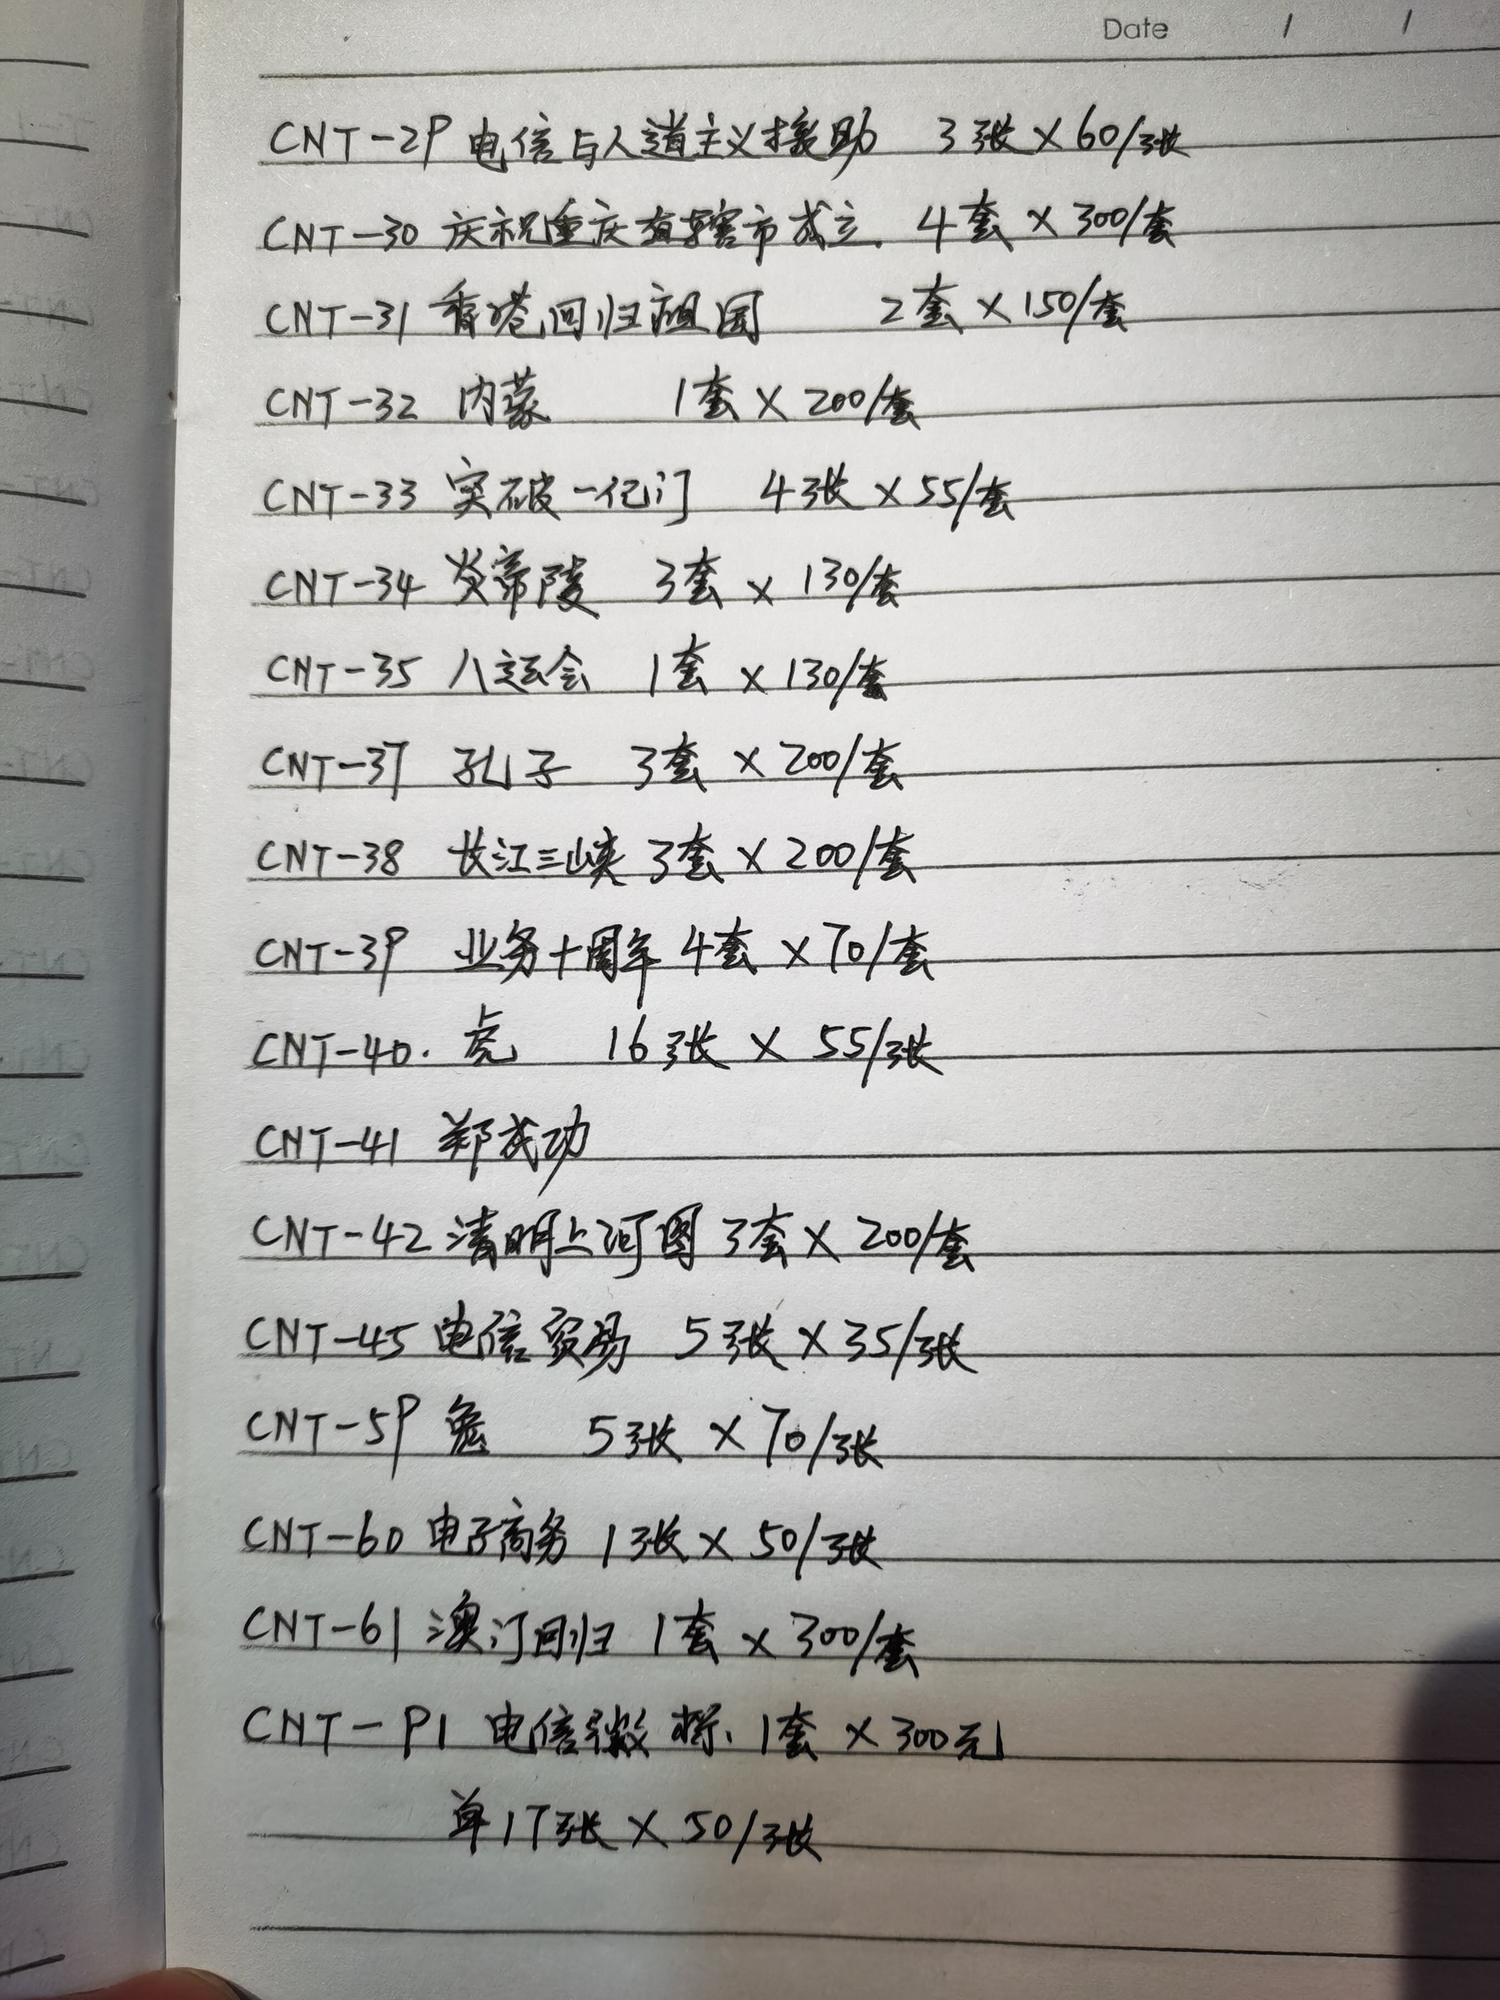 Date / /
CNT-29 电信与人道主义援助 3张×60/张
CNT-30 庆祝重庆直辖市成立. 4套×300/套
CNT-31 香港回归祖国 2套×150/套
CNT-32 内蒙 1套×200/套
CNT-33 突破一亿门 4张×55/套
CNT-34 炎帝陵 3套×130/套
CNT-35 八运会 1套×130/套
CNT-37 孔子 3套×200/套
CNT-38 长江三峡 3套×200/套
CNT-39 业务十周年 4套×70/套
CNT-40. 虎 16张×55/张
CNT-41 郑成功
CNT-42 清明上河图 3套×200/套
CNT-45 电信贸易 5张×35/张
CNT-59 兔 5张×70/张
CNT-60 电子商务 1张×50/张
CNT-61 澳门回归 1套×300/套
CNT-P1 电信徽标. 1套×300元
单17张×50/张